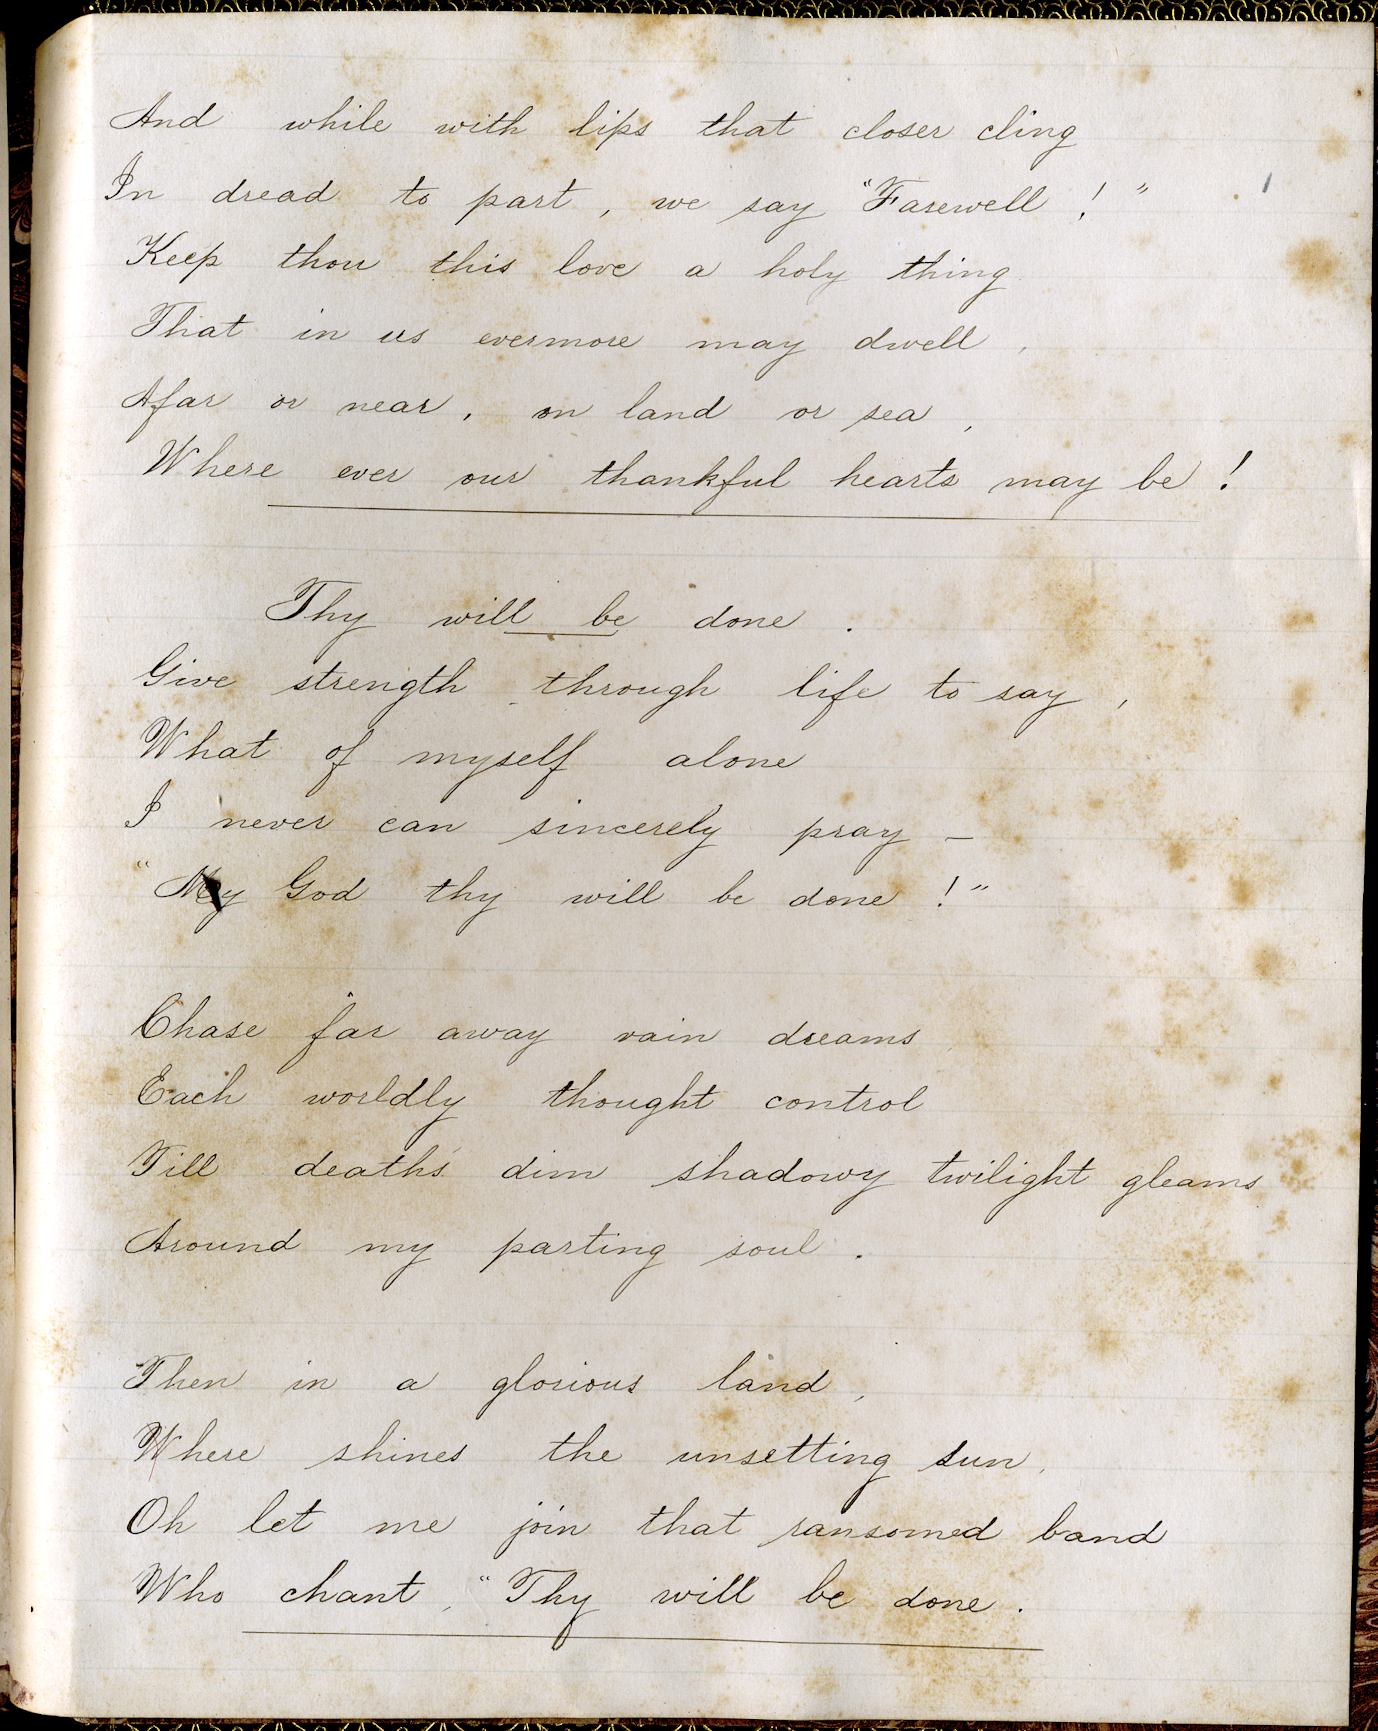 And while with lips that closer cling
In dread to part, we say "Farewell!"
Keep thou this love a holy thing
That in us evermore may dwell,
Afar or near, on land or sea,
Where ever our thankful hearts may be!
Thy will be done.
Give strength through life to say,
What of myself alone
I never can sincerely pray —
"My God thy will be done!"
Chase far away vain dreams
Each worldly thought control
Till death's dim shadowy twilight gleams
Around my parting soul.
Then in a glorious land,
Where shines the unsetting sun,
Oh let me join that ransomed band
Who chant, "Thy will be done.